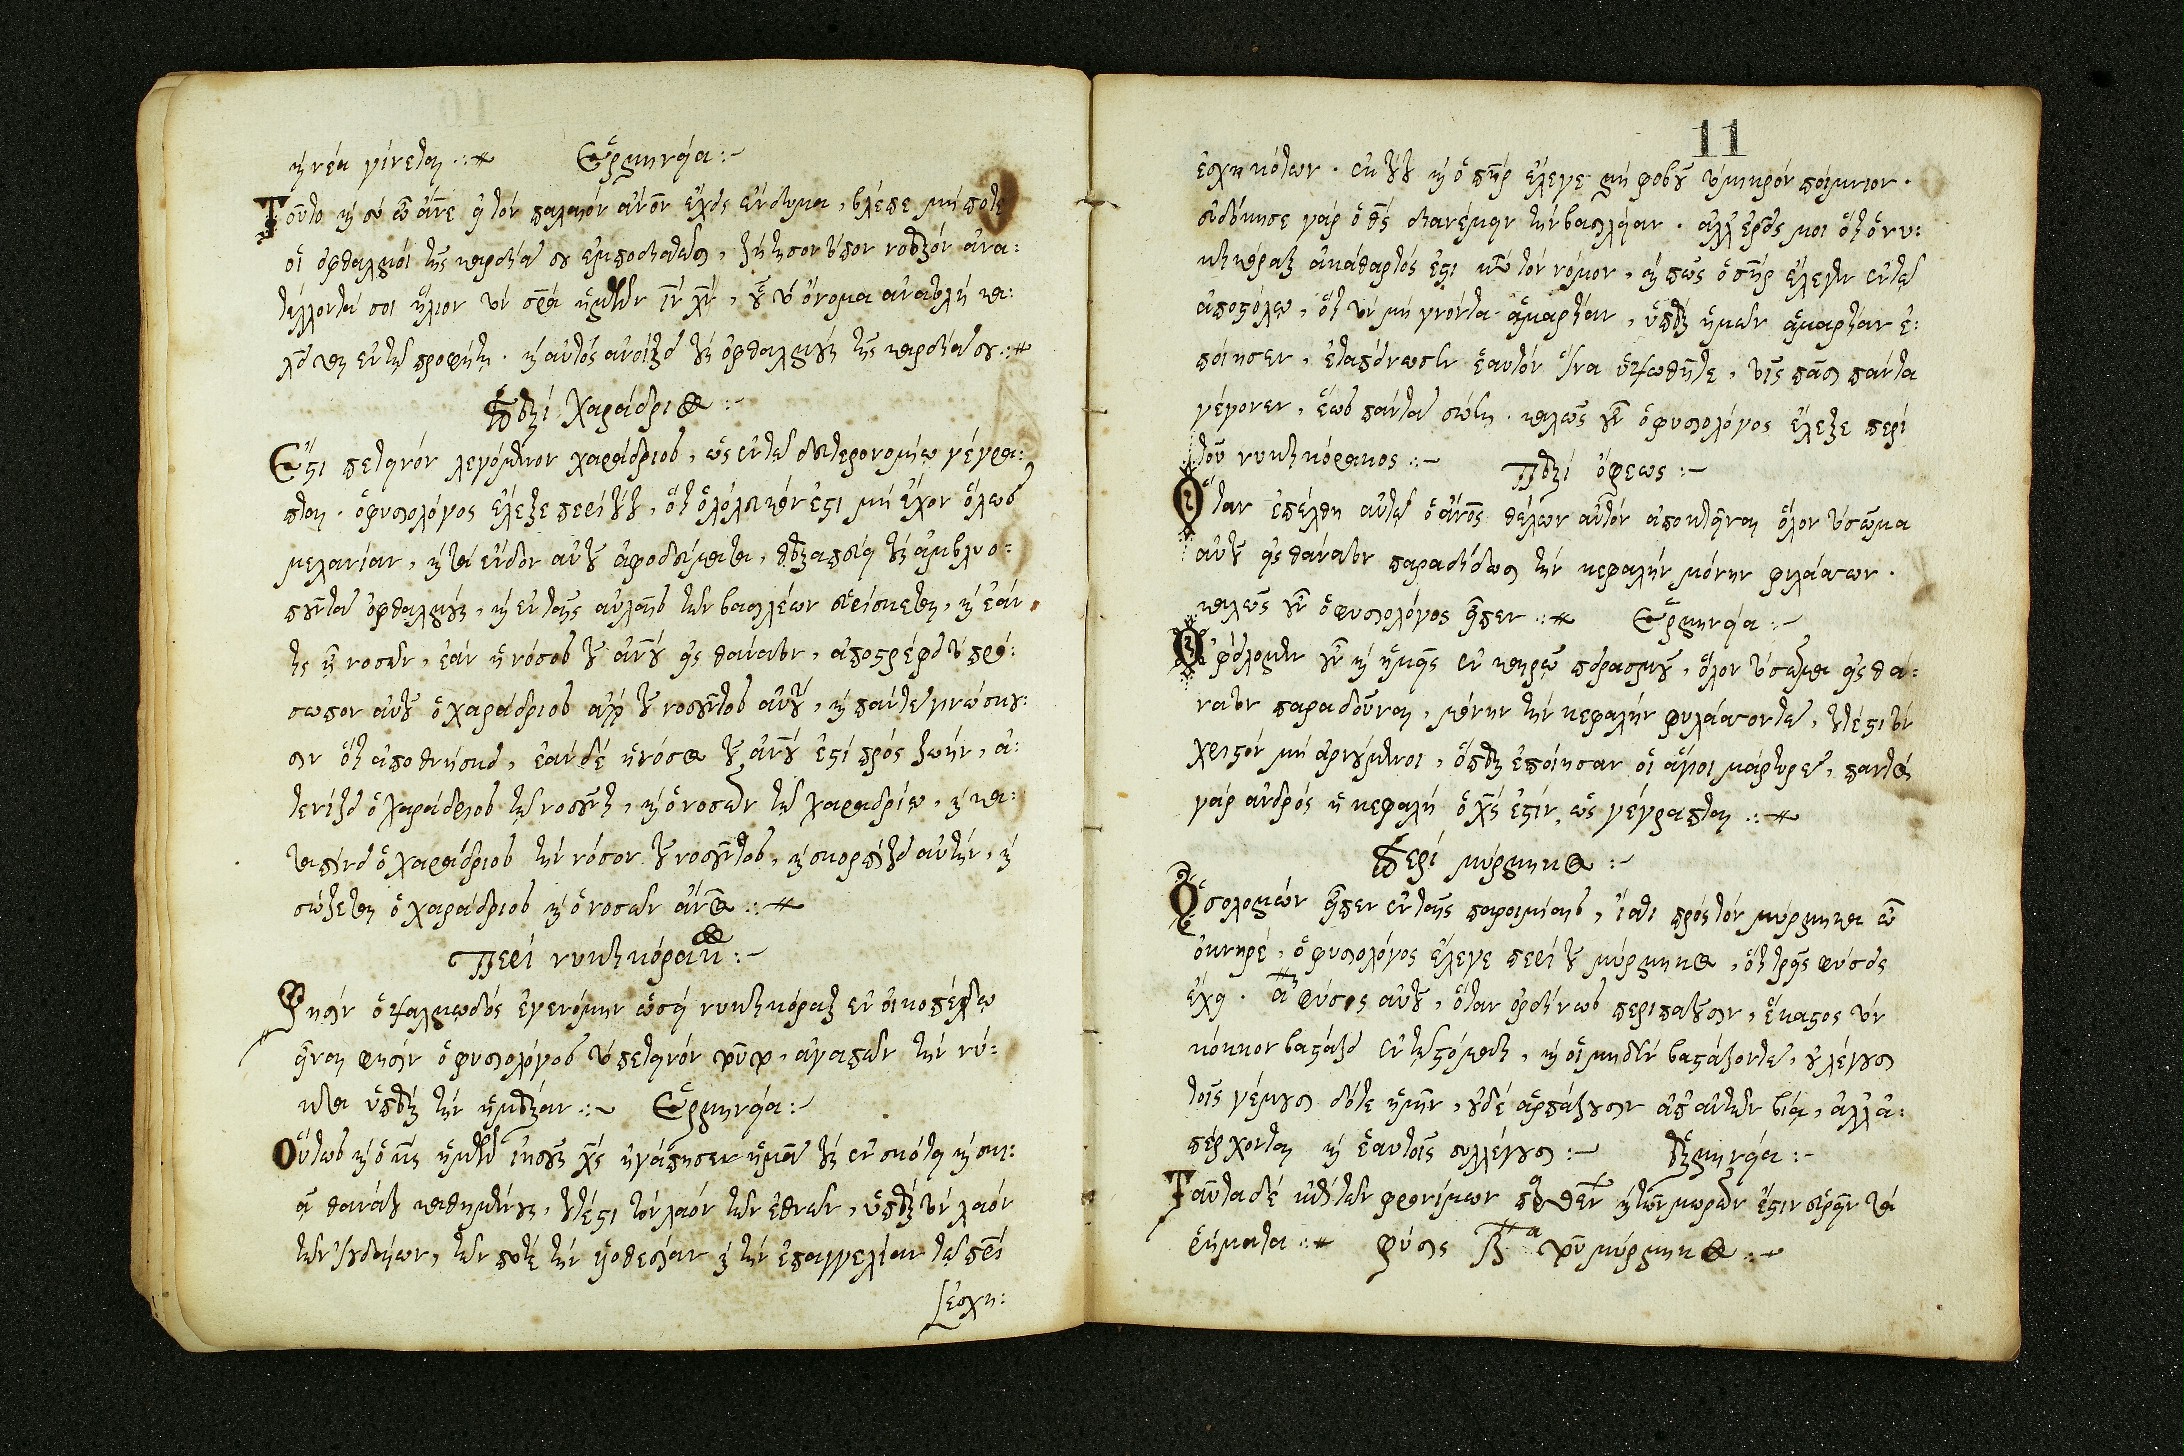 κ(αὶ) νέα γίνεται :~ Ἑρμηνεία :~
Τοῦτο κ(αὶ) σὺ ὦ ἄνε εἰ τὸν παλαιὸν ἄνον ἔχεις ἔνδυμα, βλέπε μήποτε
οἱ ὀφθαλμοὶ τῆς καρδίας σου ἐμποδισθῶσι, ζήτησον τὸν νοερὸν ἀνα:
τέλλοντά σοι ἥλιον τὸν σρα ἡμῶν ιν χν, οὗ τὸ ὄνομα ἀνατολὴ κα:
λεῖται ἐν τῷ προφήτῃ. κ(αὶ) αὐτὸς ἀνοίξει τοὺς ὀφθαλμοὺς τῆς καρδίας σου :~
Περὶ χαράδριος :~
Ἔστι πετεινὸν λεγόμενον χαράδριος, ὡς ἐν τῷ δευτερονομίῳ γέγρα:
πται. ὁ φυσιολόγος ἔλεξε περὶ τούτου, ὅτι ὁλόλευκόν ἐστι μὴ ἔχον ὅλως
μελανίαν, κ(αὶ) τὰ ἔνδον αὐτοῦ ἀφοδεύματα, θεραπεύει τοὺς ἀμβλυο:
ποῦντας ὀφθαλμοὺς, κ(αὶ) ἐν ταῖς αὐλαῖς τῶν βασιλέων εὑρίσκεται, κ(αὶ) ἐὰν
τις ᾖ νοσῶν, ἐὰν ἡ νόσος τοῦ ανου εἰς θάνατον, ἀποστρέφει τὸ πρό:
σωπον αὐτοῦ ὁ χαράδριος ἀπὸ τοῦ νοσοῦντος αὐτοῦ, κ(αὶ) πάντες γινώσκου:
σιν ὅτι ἀποθνήσκει, ἐὰν δὲ ἡ νόσος τοῦ ανου ἐστὶ πρὸς ζωὴν, ἀ:
τενίζει ὁ χαράδριος τῷ νοσοῦντι, κ(αὶ) ὁ νοσῶν τῷ χαραδρίῳ, κ(αὶ) κα:
ταπίνει ὁ χαράδριος τὴν νόσον τοῦ νοσοῦντος, κ(αὶ) σκορπίζει αὐτὴν, κ(αὶ)
σώζεται ὁ χαράδριος κ(αὶ) ὁ νοσῶν ἄνος :~
Περὶ νυκτικόρακος :~
Φησὶν ὁ ψαλμῳδὸς ἐγενόμην ὡσεὶ νυκτικόραξ ἐν οἰκοπέδῳ
εἶναι φησὶν ὁ φυσιολόγος τὸ πετεινὸν τοῦτο, ἀγαπῶν τὴν νύ:
κτα ὑπὲρ τὴν ἡμέραν :~ Ἑρμηνεία :~
Οὕτως κ(αὶ) ὁ κς ἡμῶν ἰησοῦς χς ἠγάπησεν ἡμᾶς τοὺς ἐν σκότει κ(αὶ) σκι:
ᾷ θανάτου καθημένους, τουτέστι τὸν λαὸν τῶν ἐθνῶν, ὑπὲρ τὸν λαὸν
τῶν ἰουδαίων, τῶν ποτὲ τὴν υἱοθεσίαν κ(αὶ) τὴν ἐπαγγελίαν τῶν πρι
ἐσχη:
11
ἐσχηκότων. ἐκ τούτου κ(αὶ) ὁ πηρ ἔλεγε μὴ φοβοῦ τὸ μικρὸν ποίμνιον.
εὐδόκησε γὰρ ὁ θς διανέμειν τὴν βασιλείαν. ἀλλ' ἐρεῖς μοι ὅτι ὁ νυ:
κτικόραξ ἀκάθαρτός ἐστι κατὰ τὸν νόμον, κ(αὶ) πῶς ὁ σηρ ἔλεγεν ἐν τῷ
ἀποστόλῳ, ὅτι τὸν μὴ γνόντα ἁμαρτίαν, ὑπὲρ ἡμῶν ἁμαρτίαν ἐ:
ποίησεν, ἐταπείνωσεν ἑαυτὸν ἵνα ὑψωθῆτε, τοῖς πᾶσι πάντα
γέγονεν, ἕως πάντας σώσῃ. καλῶς οὖν ὁ φυσιολόγος ἔλεξε περὶ
τοῦ νυκτικόρακος :~ Περὶ ὄφεως :~
Ὅταν ἐπέλθῃ αὐτῷ ὁ ἄνος θέλων αὐτὸν ἀποκτεῖναι ὅλον τὸ σῶμα
αὐτοῦ εἰς θάνατον παραδίδωσι τὴν κεφαλὴν μόνην φυλάσσων.
καλῶς οὖν ὁ φυσιολόγος εἶπεν :~ Ἑρμηνεία :~
Ὀφείλομεν οὖν κ(αὶ) ἡμεῖς ἐν καιρῷ πειρασμοῦ, ὅλον τὸ σῶμα εἰς θά:
νατον παραδοῦναι, μόνην τὴν κεφαλὴν φυλάσσοντας, τουτέστι τὸν
χριστὸν μὴ ἀρνούμενοι, ὅπερ ἐποίησαν οἱ ἅγιοι μάρτυρες, παντὸς
γὰρ ἀνδρὸς ἡ κεφαλὴ ὁ χς ἐστίν, ὡς γέγραπται :~
Περὶ μύρμηκος :~
Ὁ σολομὼν εἶπεν ἐν ταῖς παροιμίαις, ἴθι πρὸς τὸν μύρμηκα ὦ
ὀκνηρέ, ὁ φυσιολόγος ἔλεγε περὶ τοῦ μύρμηκος, ὅτι τρεῖς φύσεις
ἔχει. α φύσις αὐτοῦ, ὅταν ὀρδίνως περιπατοῦσιν, ἕκαστος τὸν
κόκκον βαστάζει ἐν τῷ στόματι, κ(αὶ) οἱ μηδὲν βαστάζοντες, οὐ λέγουσι
τοῖς γέμουσι δότε ἡμῖν, οὐδὲ ἁρπάζουσιν ἀπ' αὐτῶν βίᾳ, ἀλλὰ:
πέρχονται κ(αὶ) ἑαυτοῖς συλλέγουσι :~ Ἑρμηνεία :~
Ταῦτα δὲ κ(αὶ) ἐπὶ τῶν φρονίμων παρθένων κ(αὶ) τῶν μωρῶν ἐστιν εὑρεῖν τὰ
ῥήματα :~ φύσις β α τοῦ μύρμηκος :~